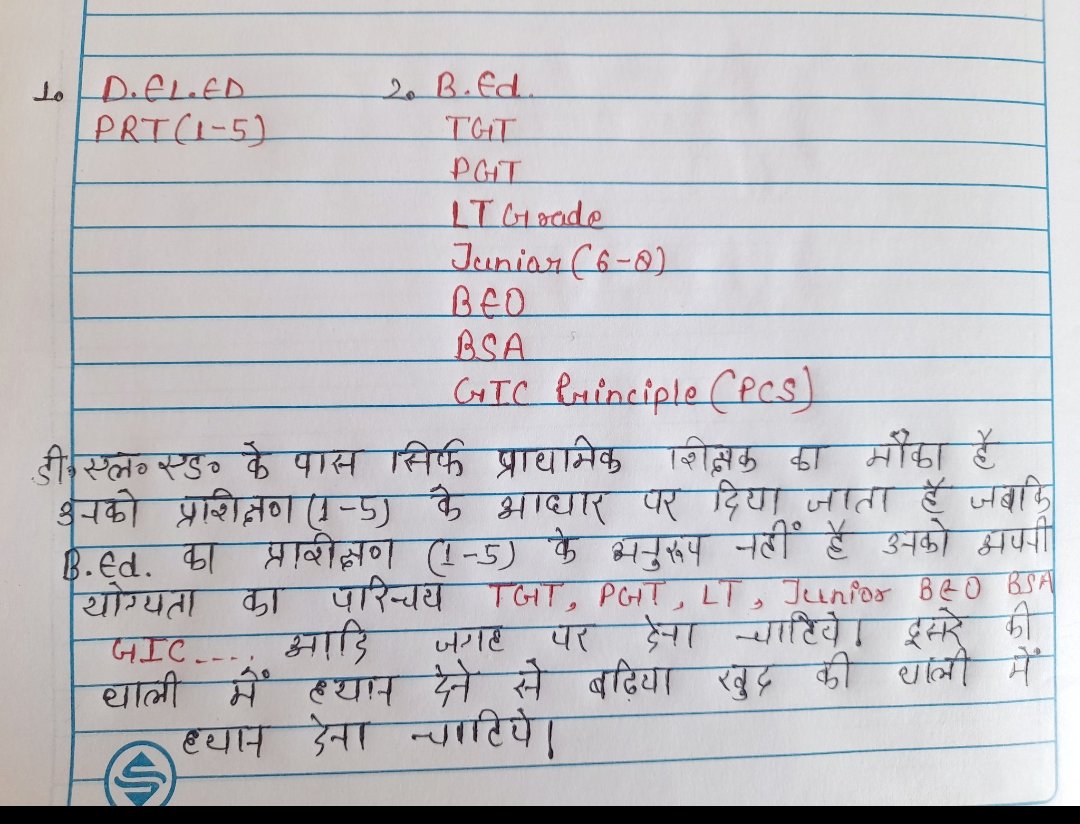 1. D.EL.ED 2. B.Ed.
PRT (1-5) TGT
PGT
LT Grade
Junior (6-8)
BEO
BSA
GIC Principle (PCS)
डी० एल० एड० के पास सिर्फ प्राथमिक शिक्षक का मौका है
उनको प्रशिक्षण (1-5) के आधार पर दिया जाता है जबकि
B.Ed. का प्रशिक्षण (1-5) के अनुरूप नहीं है उनको अपनी
योग्यता का परिचय TGT, PGT, LT, Junior BEO BSA
GIC.... आदि जगह पर देना चाहिये। दूसरे की
थाली में ध्यान देने से बढ़िया खुद की थाली में
ध्यान देना चाहिये।